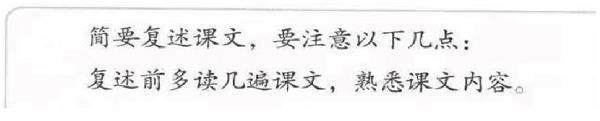 简要复述课文，要注意以下几点：
复述前多读几遍课文，熟悉课文内容。